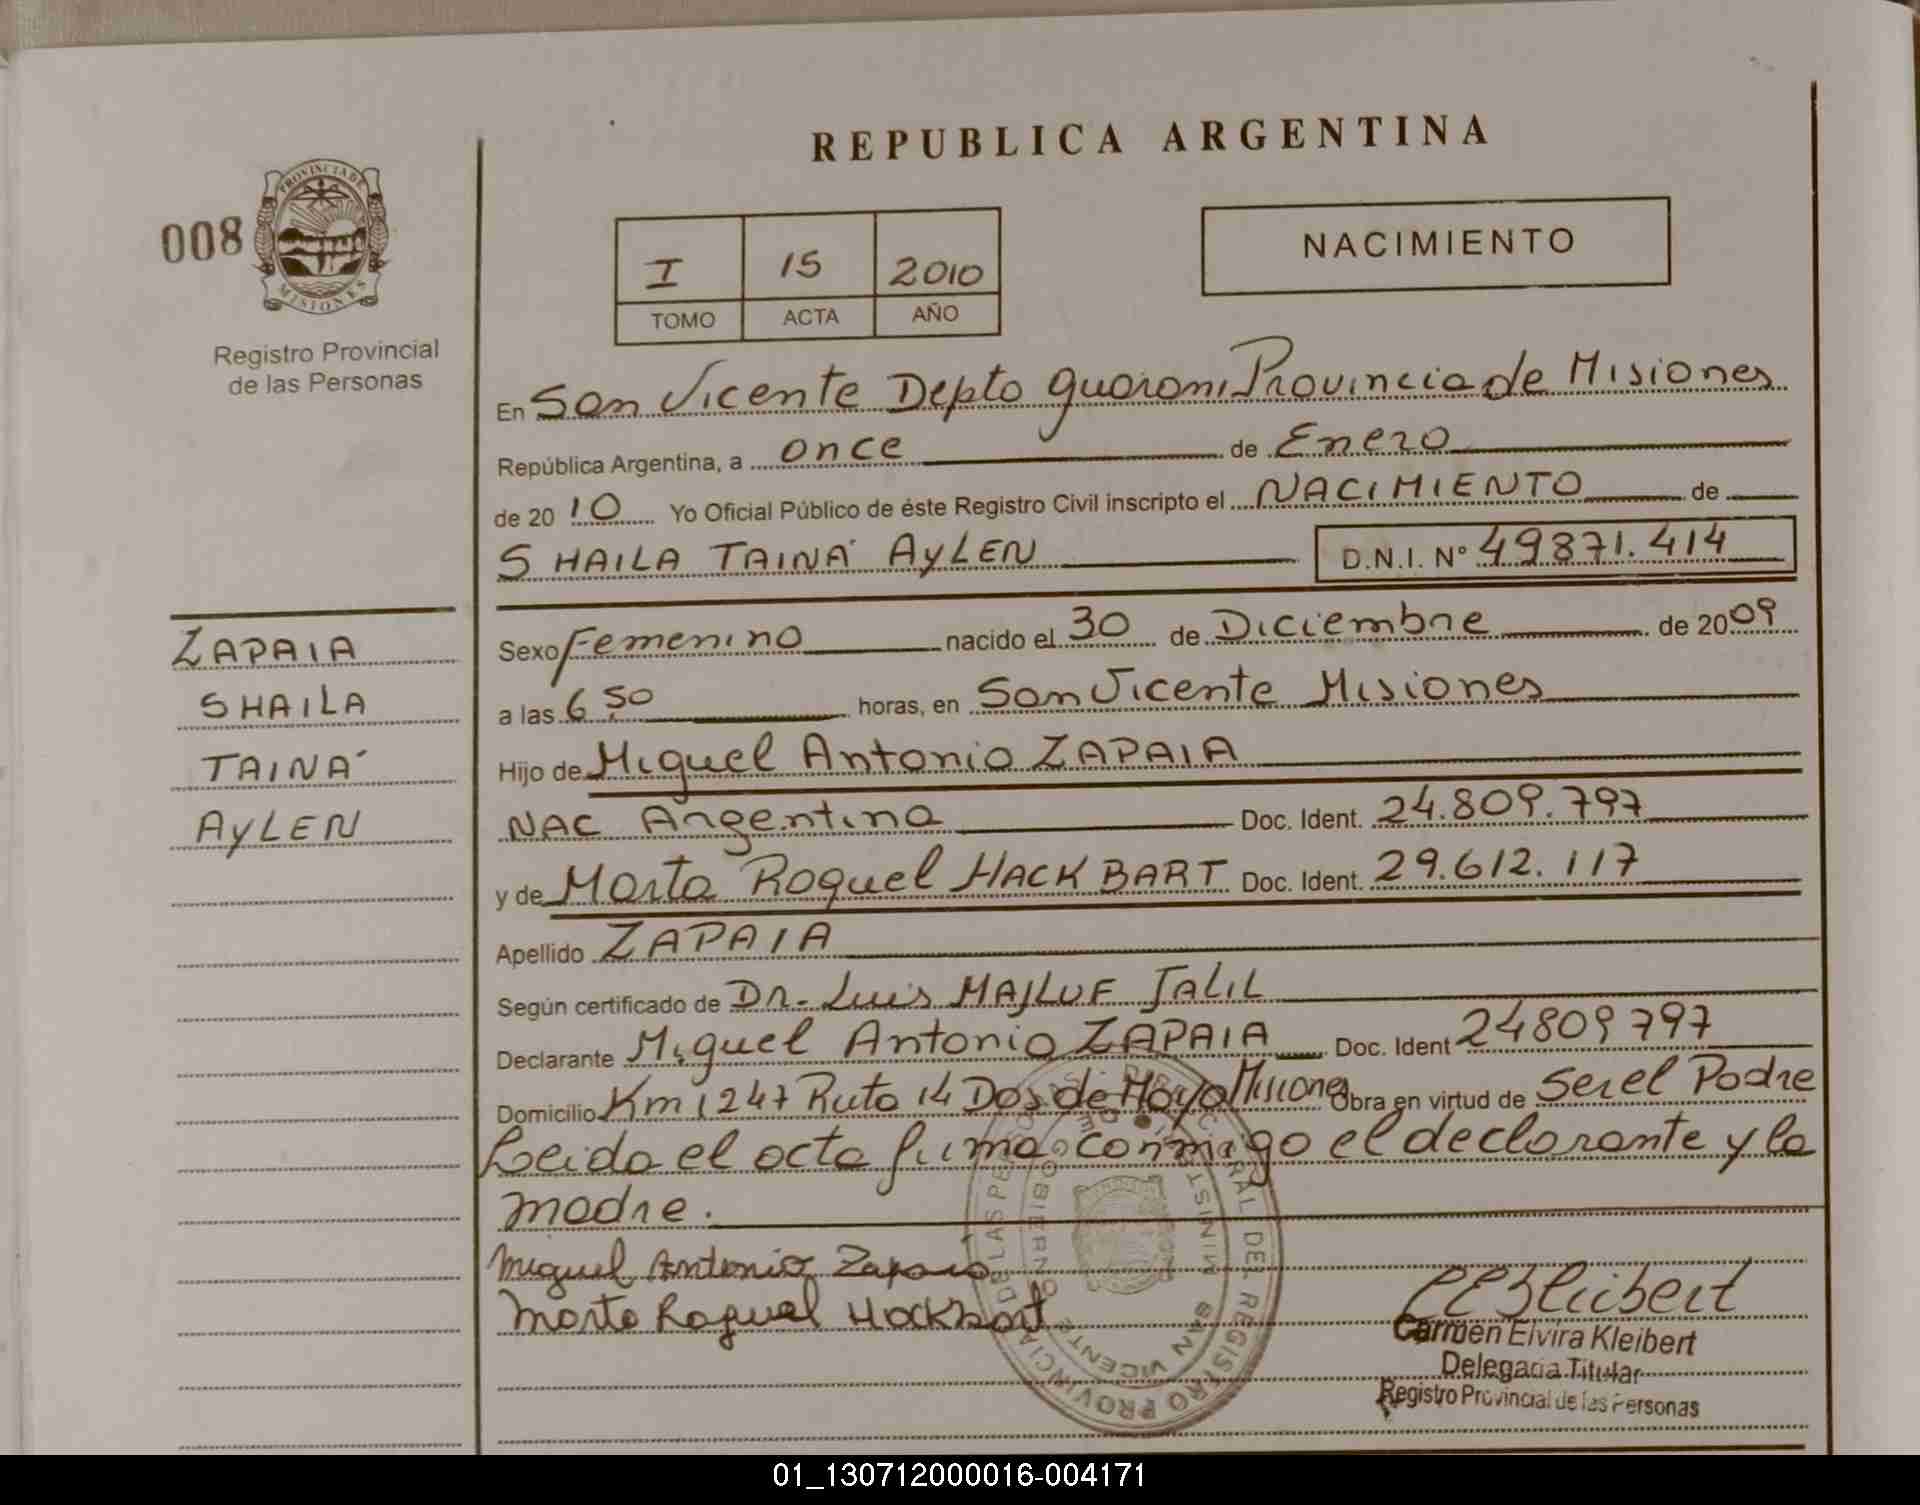 REPUBLICA ARGENTINA
008
PROVINCIA DE MISIONES
Registro Provincial
de las Personas
I 15 2010
TOMO ACTA AÑO
NACIMIENTO
En San Vicente Depto Guarani Provincia de Misiones
República Argentina, a once de Enero
de 2010 Yo Oficial Público de éste Registro Civil inscripto el NACIMIENTO de
SHAILA TAINÁ AYLEN D.N.I. Nº 49871.414
ZAPAIA
SHAILA
TAINÁ
AYLEN
Sexo Femenino nacido el 30 de Diciembre de 2009
a las 6,50 horas, en San Vicente Misiones
Hijo de Miguel Antonio ZAPAIA
NAC Argentina Doc. Ident. 24.809.797
y de Marta Raquel HACKBART Doc. Ident. 29.612.117
Apellido ZAPAIA
Según certificado de Dr. Luis MAJLUF JALIL
Declarante Miguel Antonio ZAPAIA Doc. Ident 24809797
Domicilio Km 1247 Ruta 14 Dos de Mayo Misiones Obra en virtud de Ser el Padre
Leida el acta firma conmigo el declarante y la
madre.
Miguel Antonio Zapaia
Marta Raquel Hackbart
REGISTRO PROVINCIAL DE LAS PERSONAS
SAN VICENTE
Carmen Elvira Kleibert
Delegada Titular
Registro Provincial de las Personas
01_130712000016-004171